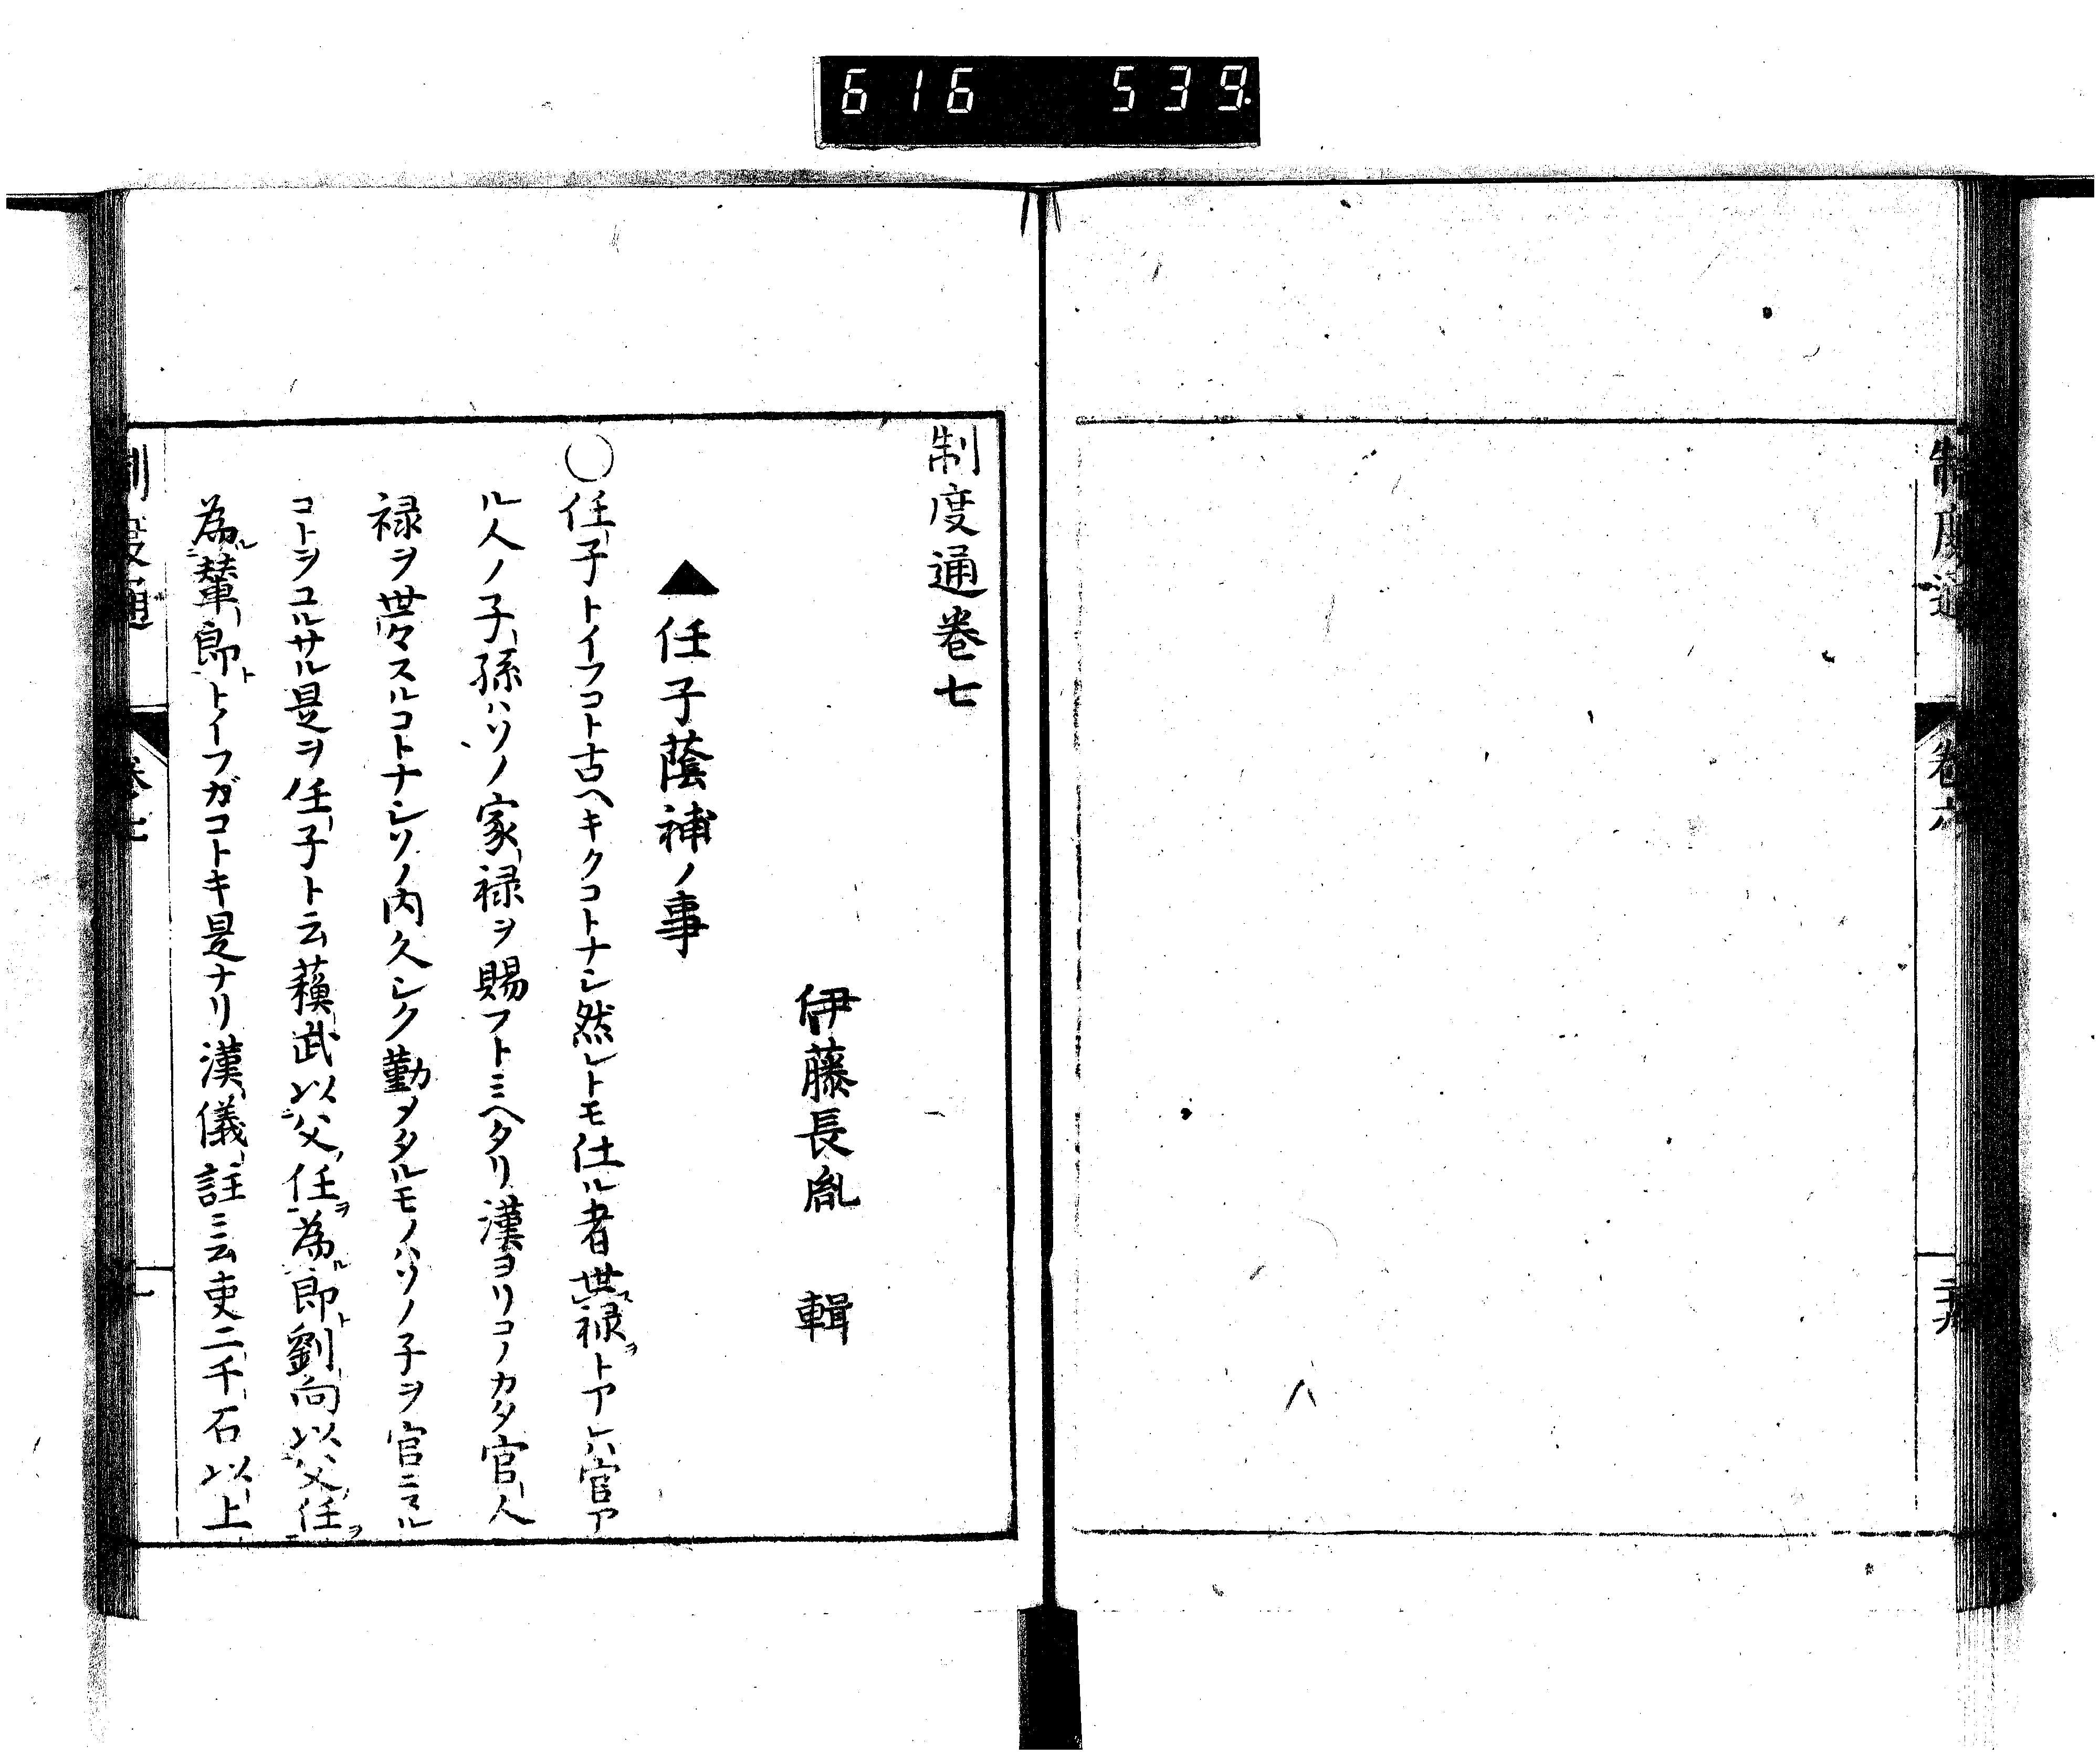 616 539.
制度通 卷六
制度通卷七
伊藤長胤 輯
▲任子蔭補ノ事
○任子トイフコト古ヘキクコトナシ然レトモ仕ル者世禄ヲトアレハ官ア
ル人ノ子孫ハソノ家禄ヲ賜フトミヘタリ漢ヨリコノカタ官人
禄ヲ世々スルコトナシソノ内久シク勤メタルモノハソノ子ヲ官ニスル
コトヲユルサル是ヲ任子ト云蘓武以父任ヲ為ル郎ト劉向以父任ヲ
為ル輦郎トトイフガコトキ是ナリ漢儀註ニ云吏二千石以上
制度通 卷七